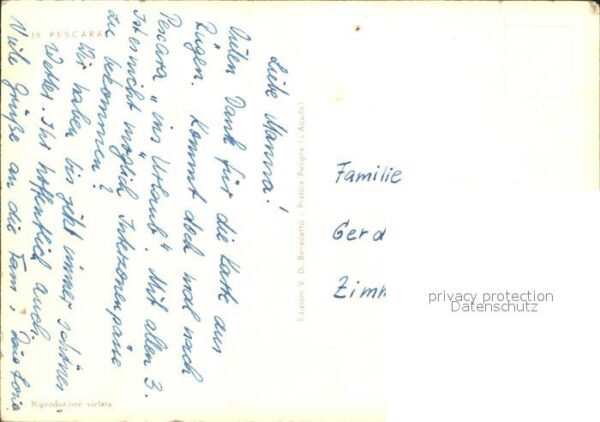 19 PESCARA
Liebe Hanna!
Vielen Dank für die Karte aus
Rügen. Kommt doch mal nach
Pescara "ins Urlaub". Mit allen 3.
Ist es nicht möglich Interzonenpässe
zu bekommen?
Wir haben bis jetzt immer schönes
Wetter. Ihr hoffentlich auch.
Viele Grüße an die Fam.,
Riproduzione vietata
Edizioni V. D. Benedetto - Pratola Peligna (L'Aquila)
Familie
Gerd
Zimm
privacy protection
Datenschutz